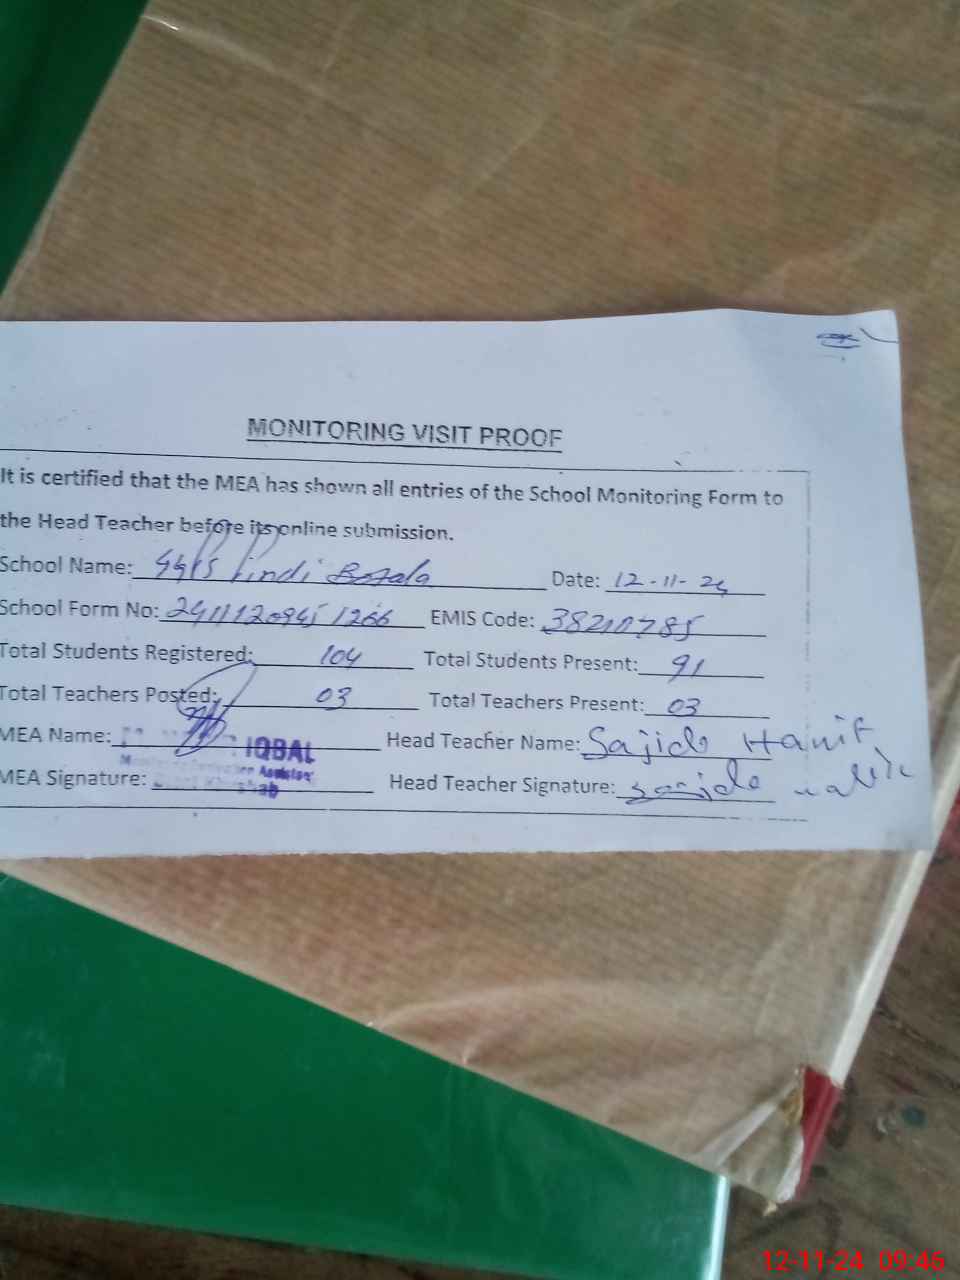 MONITORING VISIT PROOF
It is certified that the MEA has shown all entries of the School Monitoring Form to
the Head Teacher before its online submission.
School Name: Pindi Date: 12-11-24
School Form No: EMIS Code: 38210785
Total Students Registered: 104 Total Students Present: 91
Total Teachers Posted: 03 Total Teachers Present: 03
MEA Name: IQBAL Head Teacher Name: Sajida Hanif
Assistant
MEA Signature: Head Teacher Signature: Sajida
12-11-24 09:46